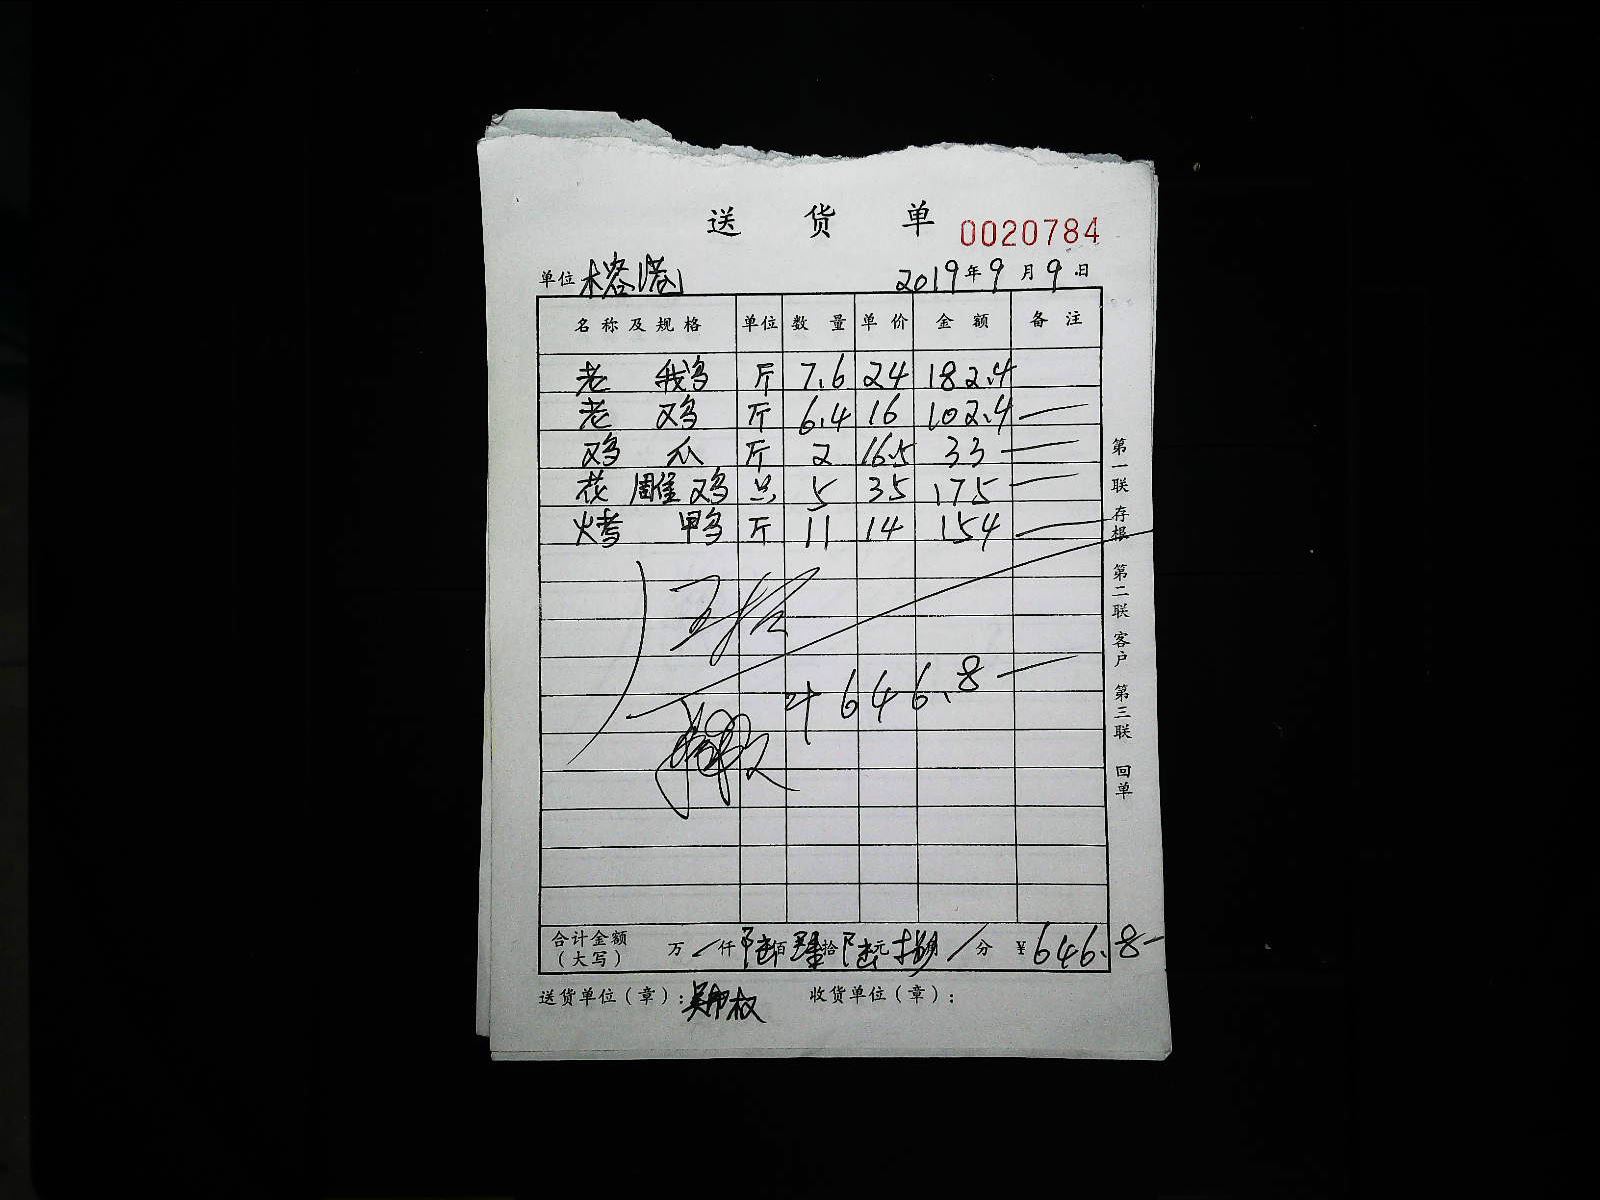 送 货 单 0020784
单位 榕港 2019年9月9日
名称及规格 单位 数量 单价 金额 备注
老 鹅 斤 7.6 24 182.4
老 鸡 斤 6.4 16 102.4
鸡 爪 斤 2 16.5 33
花雕鸡 只 5 35 175
烤 鸭 斤 11 14 154
计 646.8
合计金额（大写） 万 / 仟 陆 佰 肆 拾 陆 元 捌 角 / 分 ¥646.8
送货单位（章）： 收货单位（章）：
第一联 存根 第二联 客户 第三联 回单